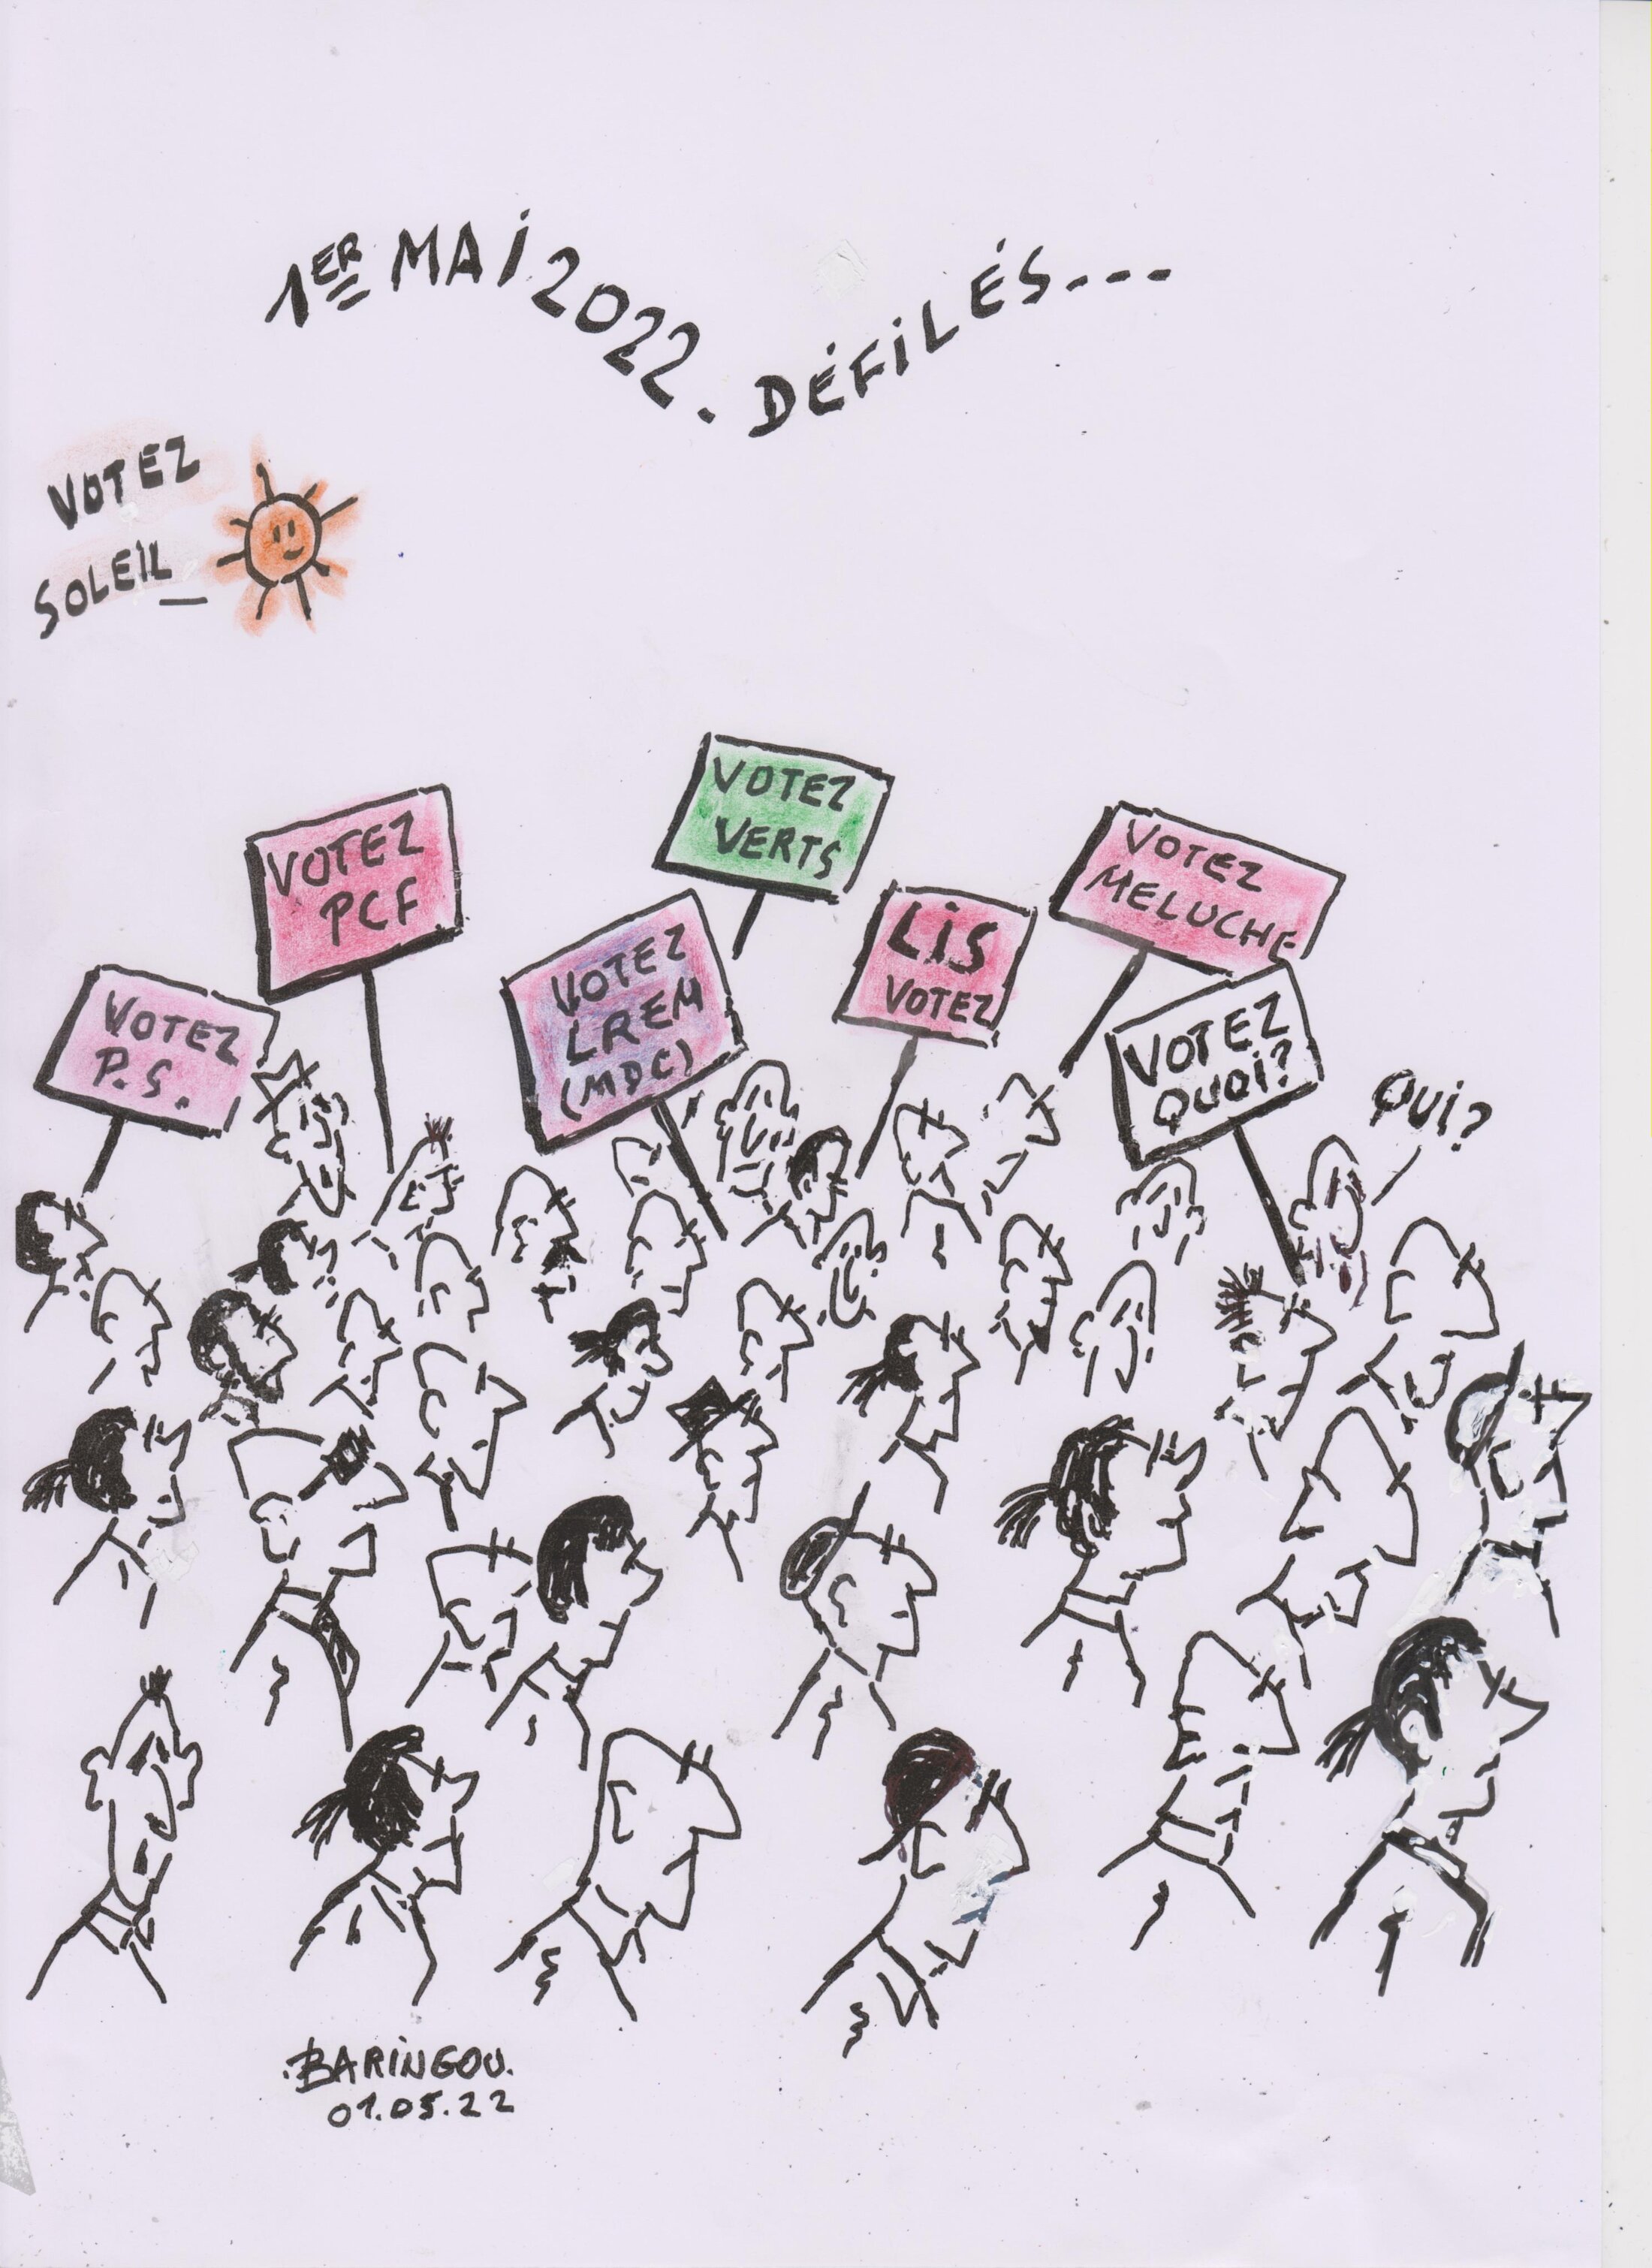 1ER MAI 2022. DÉFILÉS...
VOTEZ
SOLEIL_
VOTEZ
VERTS
VOTEZ
PCF
VOTEZ
MELUCHE
LIS
VOTEZ
VOTEZ
LREM
(MDC)
VOTEZ
P.S.
VOTEZ
QUOI?
QUI?
BARINGOU.
01.05.22